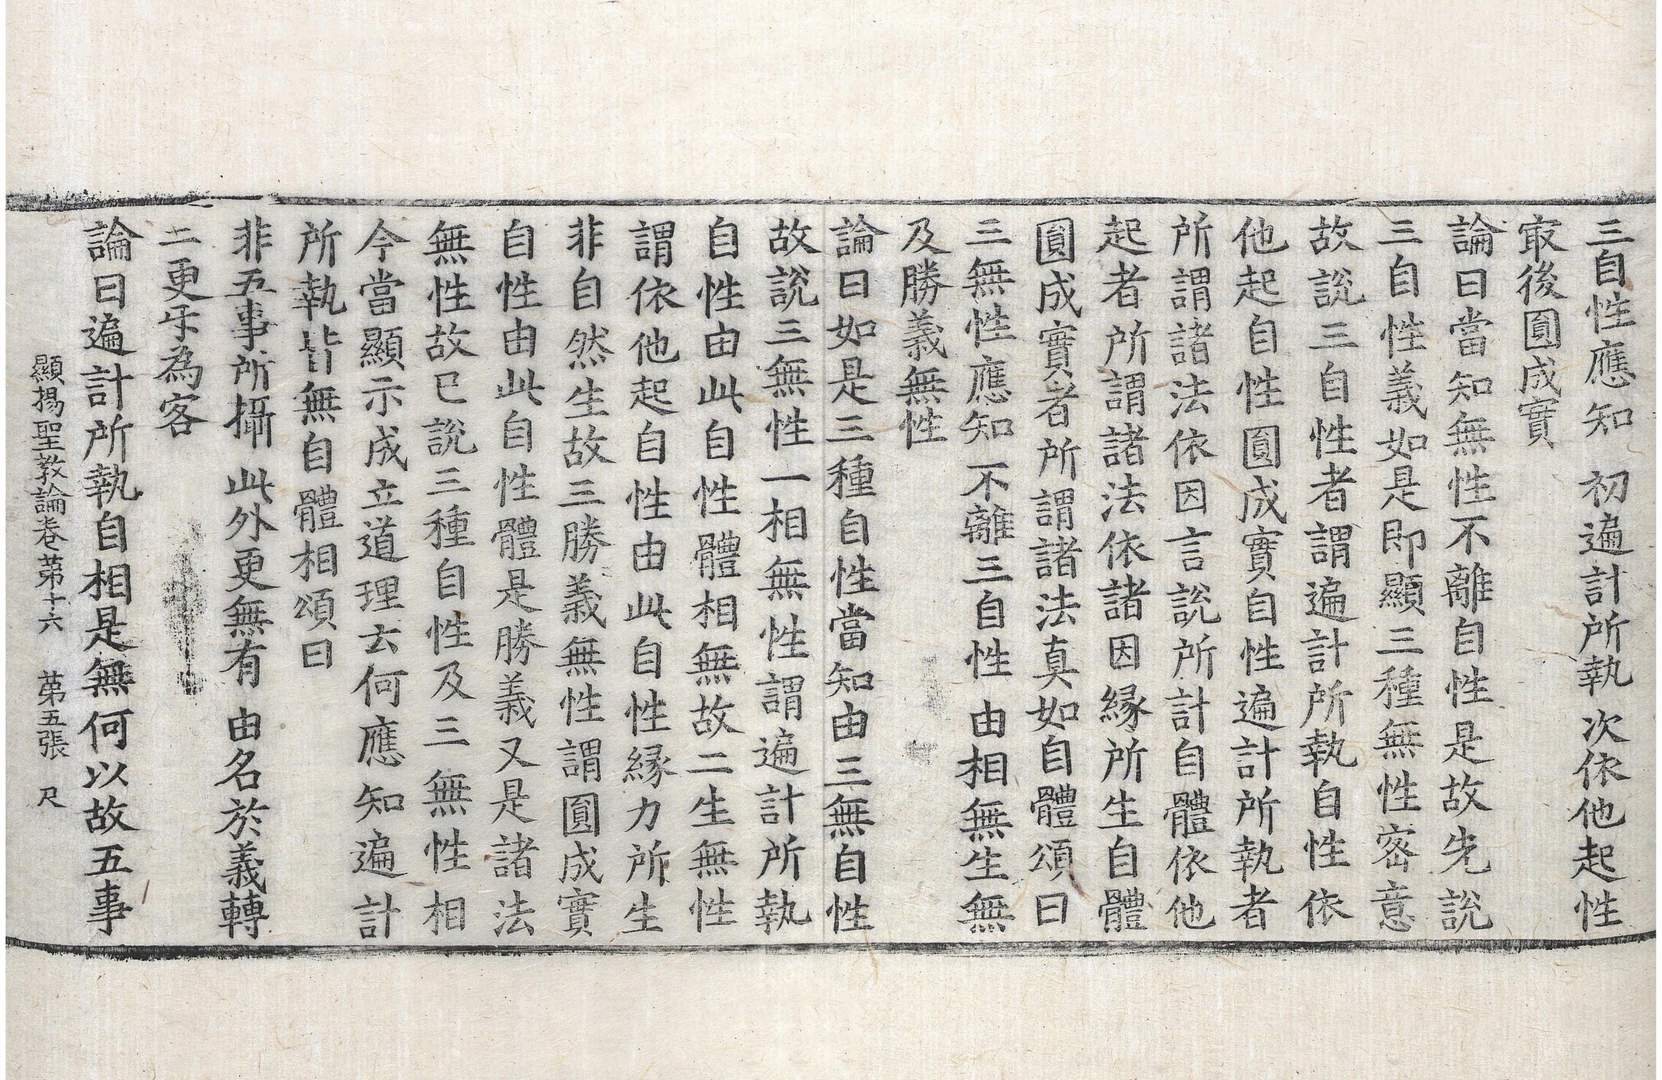 三自性應知　初遍計所執　次依他起性
㝡後圎成實
論曰當知無性不離自性是故先說
三自性義如是即顯三種無性密意
故說三自性者謂遍計所執自性依
他起自性圎成實自性遍計所執者
所謂諸法依因言說所計自體依他
起者所謂諸法依諸因緣所生自體
圎成實者所謂諸法真如自體頌曰
三無性應知　不離三自性　由相無生無
及勝義無性
論曰如是三種自性當知由三無自性
故說三無性一相無性謂遍計所執
自性由此自性體相無故二生無性
謂依他起自性由此自性緣力所生
非自然生故三勝義無性謂圎成實
自性由此自性體是勝義又是諸法
無性故已說三種自性及三無性相
今當顯示成立道理云何應知遍計
所執皆無自體相頌曰
非五事所攝　此外更無有　由名於義轉
二更㸦為客
論曰遍計所執自相是無何以故五事
顯揚聖教論卷第十六　第五張　尺